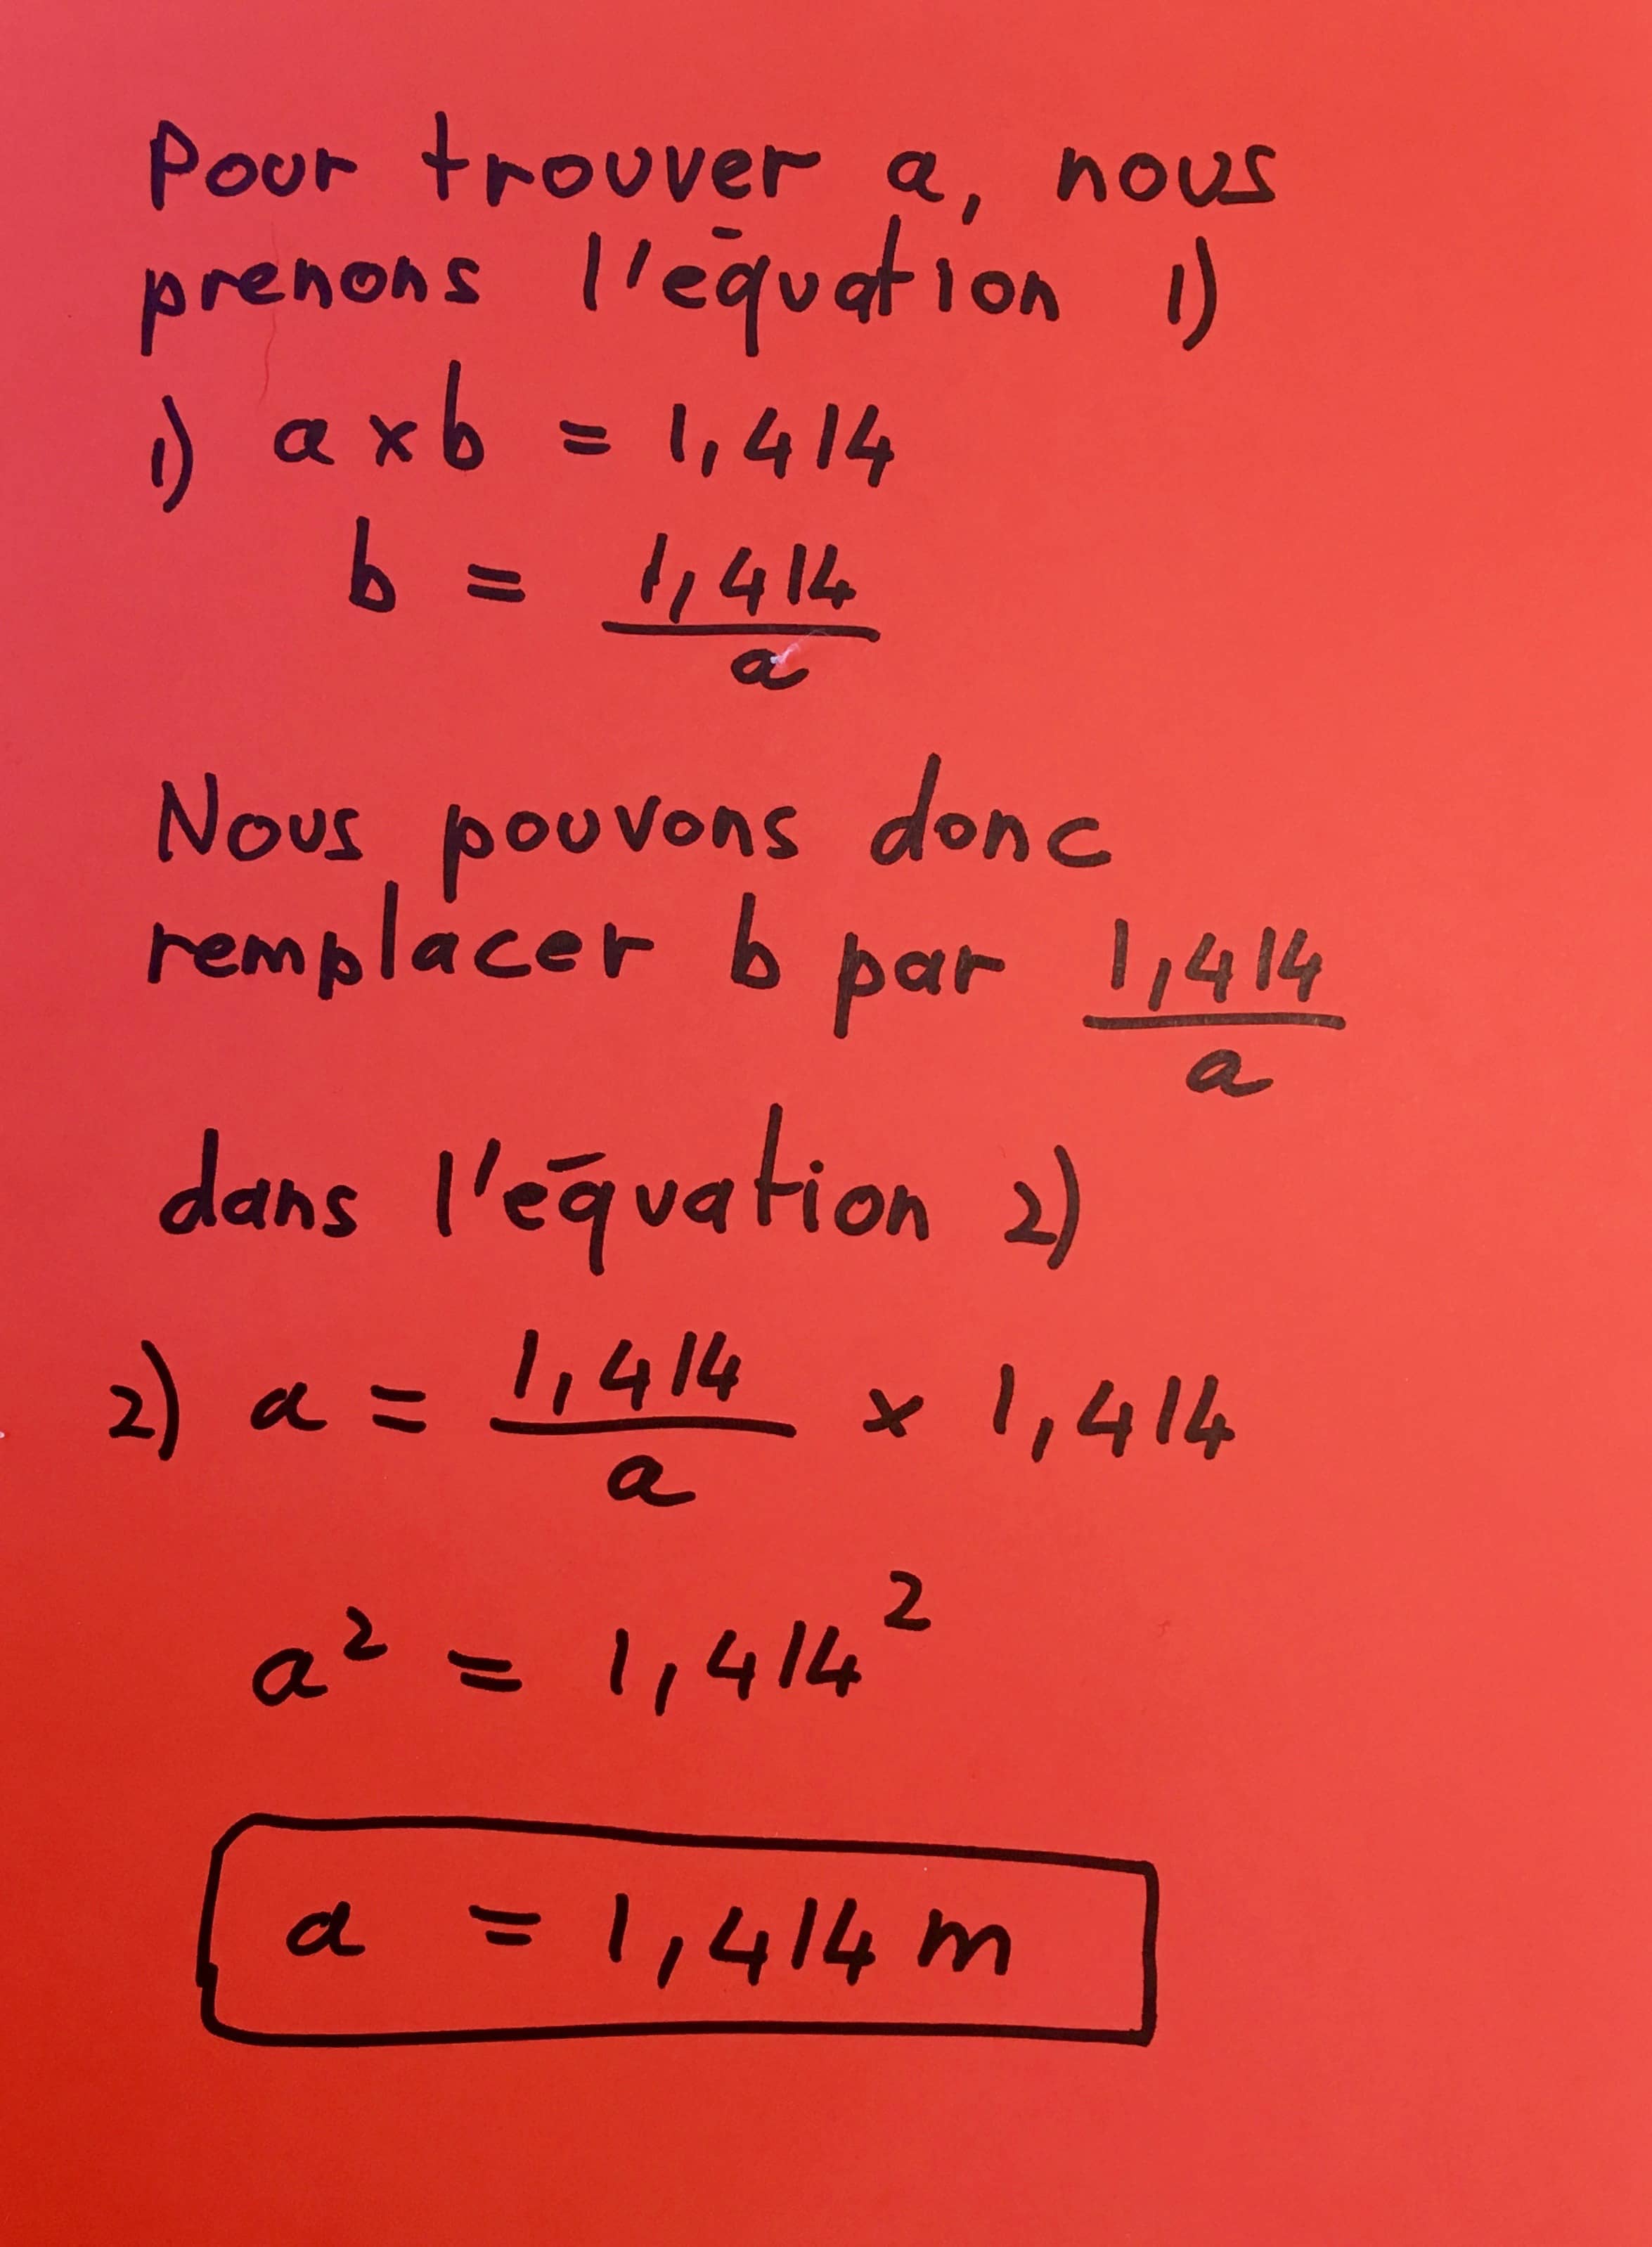 Pour trouver a, nous
prenons l'équation 1)
1) a x b = 1,414
b = 1,414 / a
Nous pouvons donc
remplacer b par 1,414 / a
dans l'équation 2)
2) a = 1,414 / a x 1,414
a² = 1,414²
a = 1,414 m